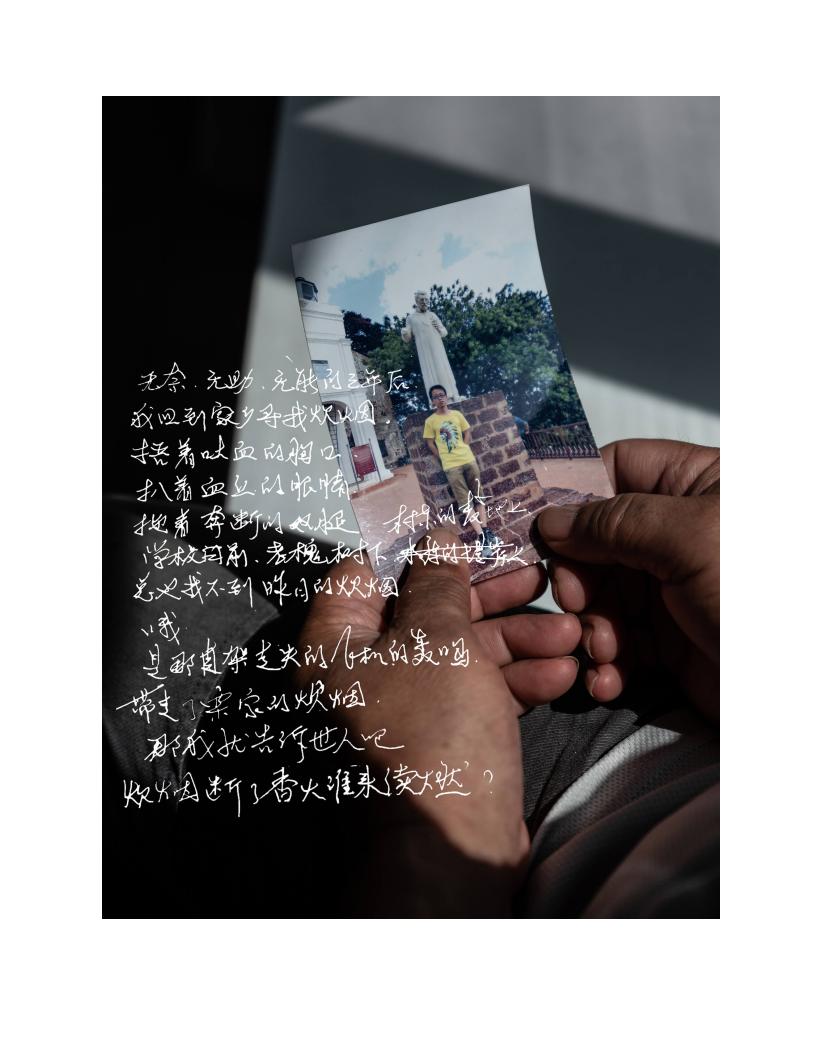 无奈.无助.无能的三年后
我回到家乡寻找炊烟.
捂着吐血的胸口.
扒着血丝的眼睛.
拖着奔断的双腿. 的麦地上
学校门前.老槐树下.
总也找不到昨日的炊烟.
哦
是那架走失的飞机的轰鸣.
带走了家的炊烟.
那我就告诉世人吧
炊烟断了香火谁来续燃?